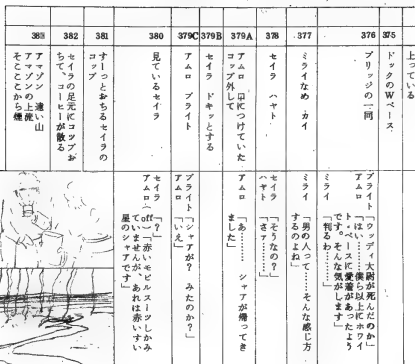 上っている
375
ドックのWベース
376
ブリッジの一同
ブライト「ウッディ大尉が死んだのか」
アムロ「はい……僕ら以上にホワイ
ト・ベースに愛着があったよう
です。そんな気がします」
ミライ「判るわ」
377
ミライなめ カイ
ミライ「男の人って……そんな感じ方
するのよね」
378
セイラ ハヤト
セイラ「そうなの?」
ハヤト「さァ……」
379A
アムロ 口につけていた
コップ外して
アムロ「あ…… シャアが帰ってき
ました」
379B
セイラ ドキッとする
379C
アムロ ブライト
ブライト「シャアが? みたのか?」
アムロ「いえ」
380
見ているセイラ
セイラ「?」
アムロ(off)「赤いモビルスーツしかみ
ていませんが、あれは赤いすい
星のシャアです」
381
すーっとおちるセイラの
コップ
382
セイラの足元にコップお
ちて、コーヒーが散る
383
アマゾン 遠い山
アマゾンの上流
そここから煙